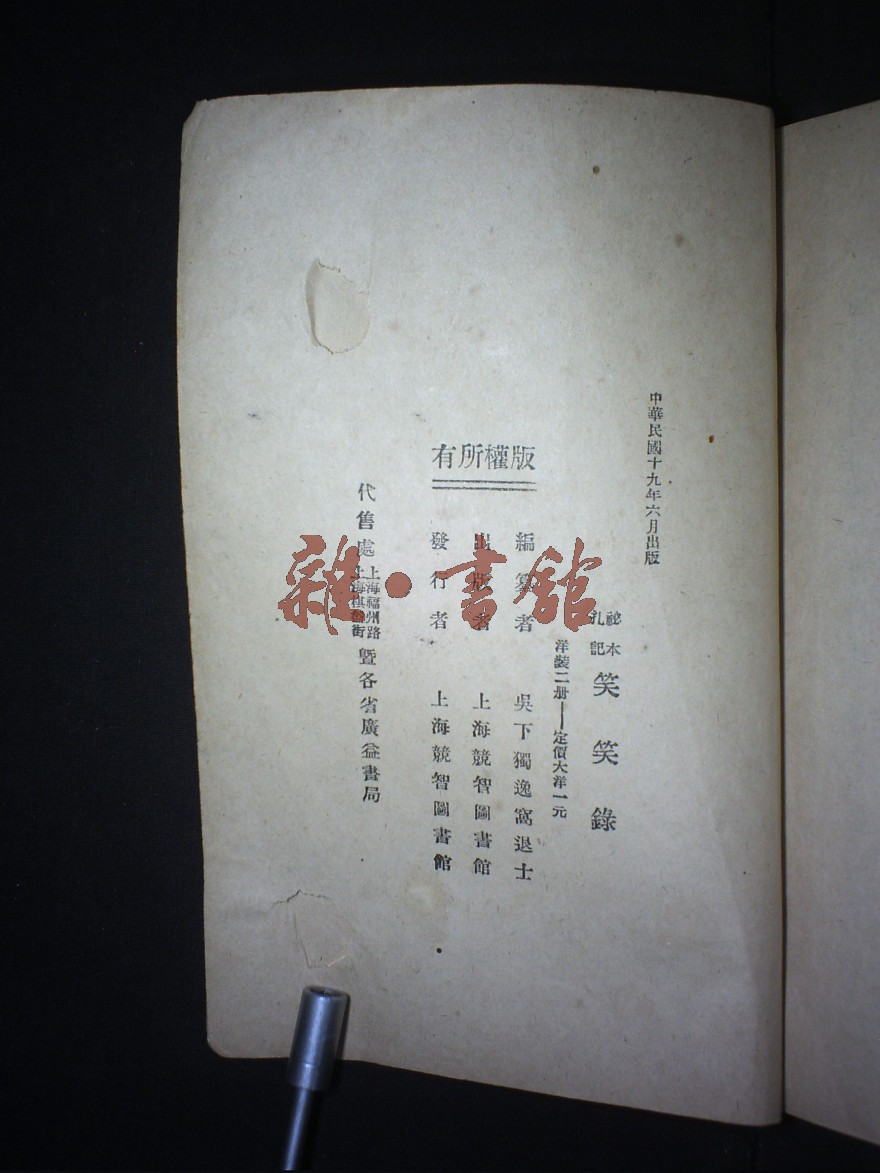 中華民國十九年六月出版
祕本
札記
笑笑錄
洋裝二册——定價大洋一元
版權所有
編纂者 吳下獨逸窩退士
出版者 上海競智圖書館
發行者 上海競智圖書館
代售處 上海福州路 上海棋盤街 暨各省廣益書局
雜·書館